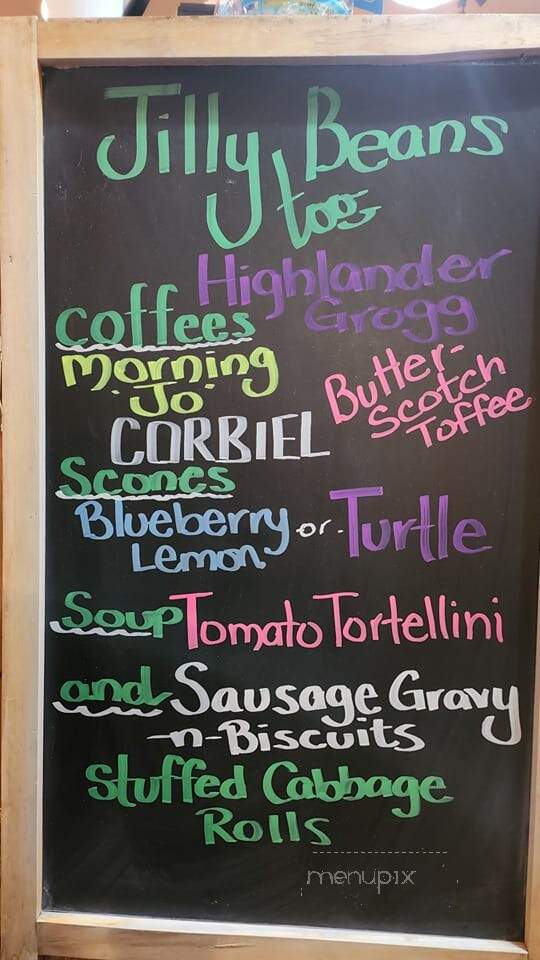 Jilly Beans
too
Highlander
Grogg
Coffees
Morning
Jo
Butter-
Scotch
Toffee
CORBIEL
Scones
Blueberry or Turtle
Lemon
Soup Tomato Tortellini
and Sausage Gravy
-n-Biscuits
Stuffed Cabbage
Rolls
menupix